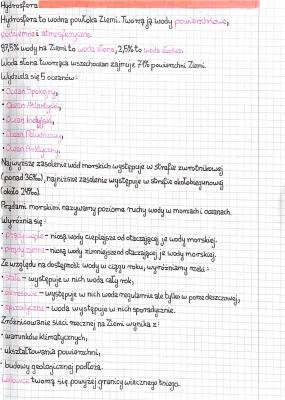 Hydrosfera
Hydrosfera to wodna powłoka Ziemi. Tworzą ją wody powierzchniowe,
podziemne i atmosferyczne.
97,5% wody na Ziemi to woda słona, 2,5% to woda słodka.
Woda słona tworząca wszechocean zajmuje 71% powierzchni Ziemi.
Wydziela się 5 oceanów:
• Ocean Spokojny,
• Ocean Atlantycki,
• Ocean Indyjski,
• Ocean Południowy,
• Ocean Arktyczny.
Najwyższe zasolenie wód morskich występuje w strefie zwrotnikowej
(ponad 36‰), najniższe zasolenie występuje w strefie okołobiegunowej
(około 24‰).
Prądami morskimi nazywamy poziome ruchy wody w morzach i oceanach.
Wyróżnia się:
• prądy ciepłe – niosą wody cieplejsze od otaczającej je wody morskiej.
• prądy zimne – niosą wody zimniejsze od otaczającej je wody morskiej.
Ze względu na dostępność wody w ciągu roku, wyróżniamy rzeki:
• stałe – występuje w nich woda cały rok,
• okresowe – występuje w nich woda regularnie ale tylko w porze deszczowej,
• epizodyczne – woda występuje w nich sporadycznie.
Zróżnicowanie sieci rzecznej na Ziemi wynika z:
• warunków klimatycznych,
• ukształtowania powierzchni,
• budowy geologicznej podłoża.
Lodowce tworzą się powyżej granicy wiecznego śniegu.